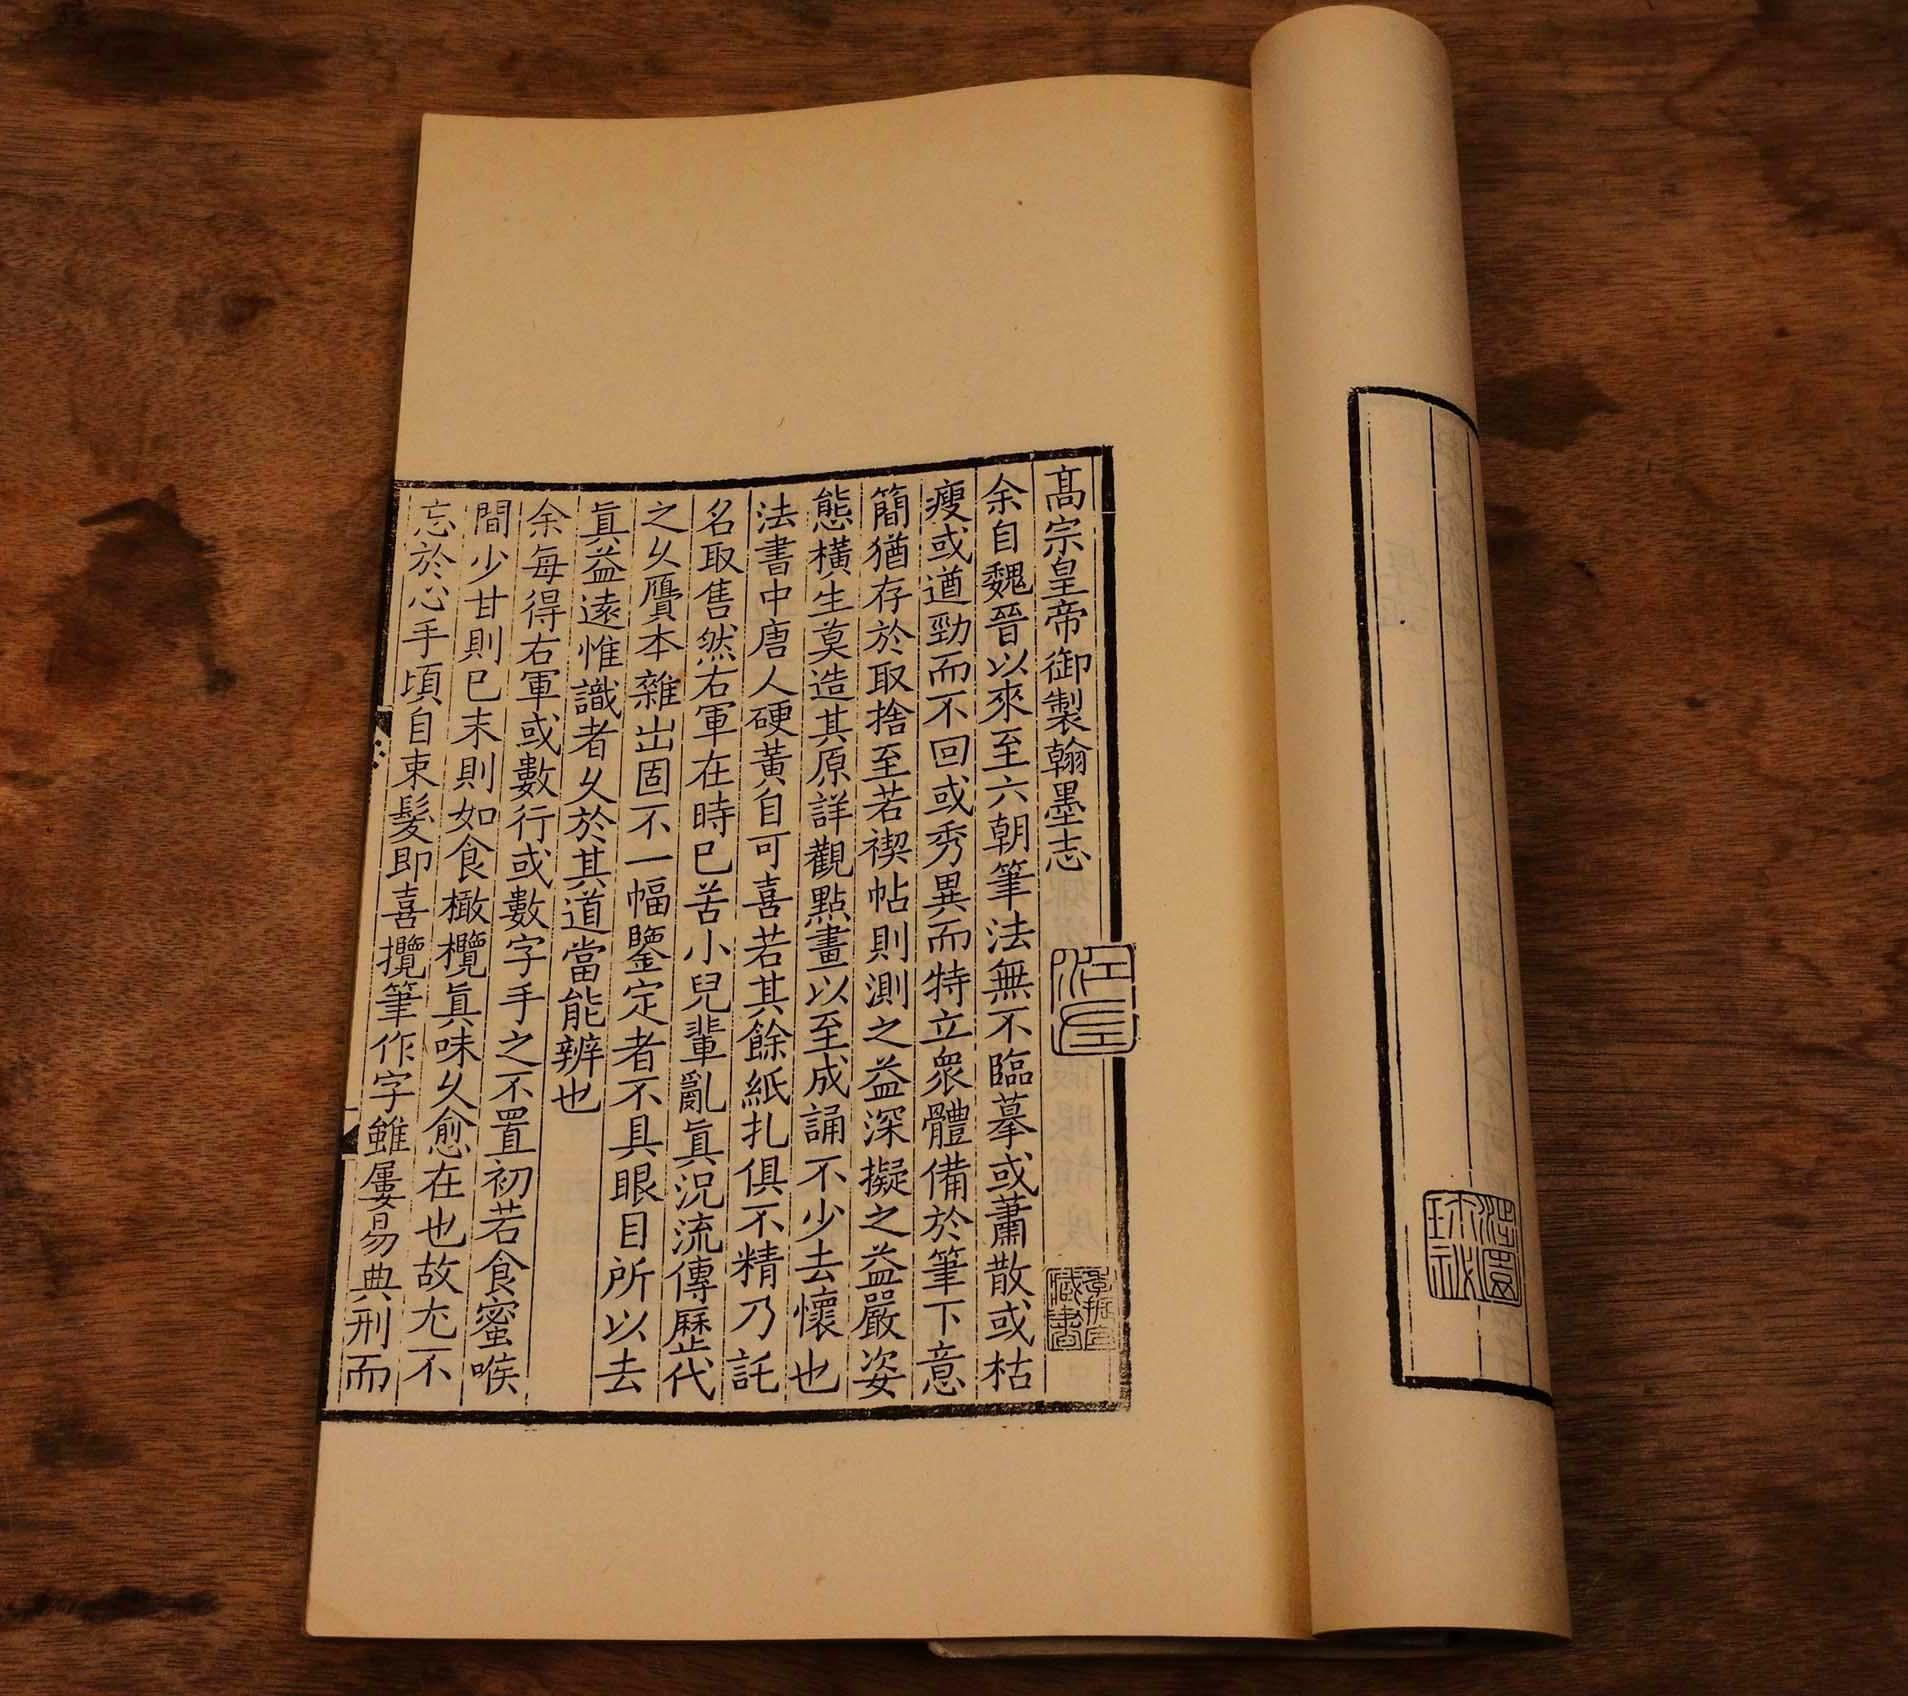 髙宗皇帝御製翰墨志
余自魏晉以來至六朝筆法無不臨摹或蕭散或枯
瘦或遒勁而不回或秀異而特立衆體備於筆下意
簡猶存於取捨至若禊帖則測之益深擬之益嚴姿
態橫生莫造其原詳觀點畫以至成誦不少去懷也
法書中唐人硬黃自可喜若其餘紙扎俱不精乃託
名取售然右軍在時已苦小兒輩亂眞況流傳歷代
之久贋本雜出固不一幅鑒定者不具眼目所以去
眞益遠惟識者久於其道當能辨也
余每得右軍或數行或數字手之不置初若食蜜喉
間少甘則已末則如食橄欖眞味久愈在也故尤不
忘於心手頃自束髮即喜攬筆作字雖屢易典刑而